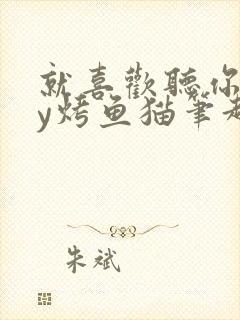 就喜歡聽你
y烤鱼猫笔趣
朱斌